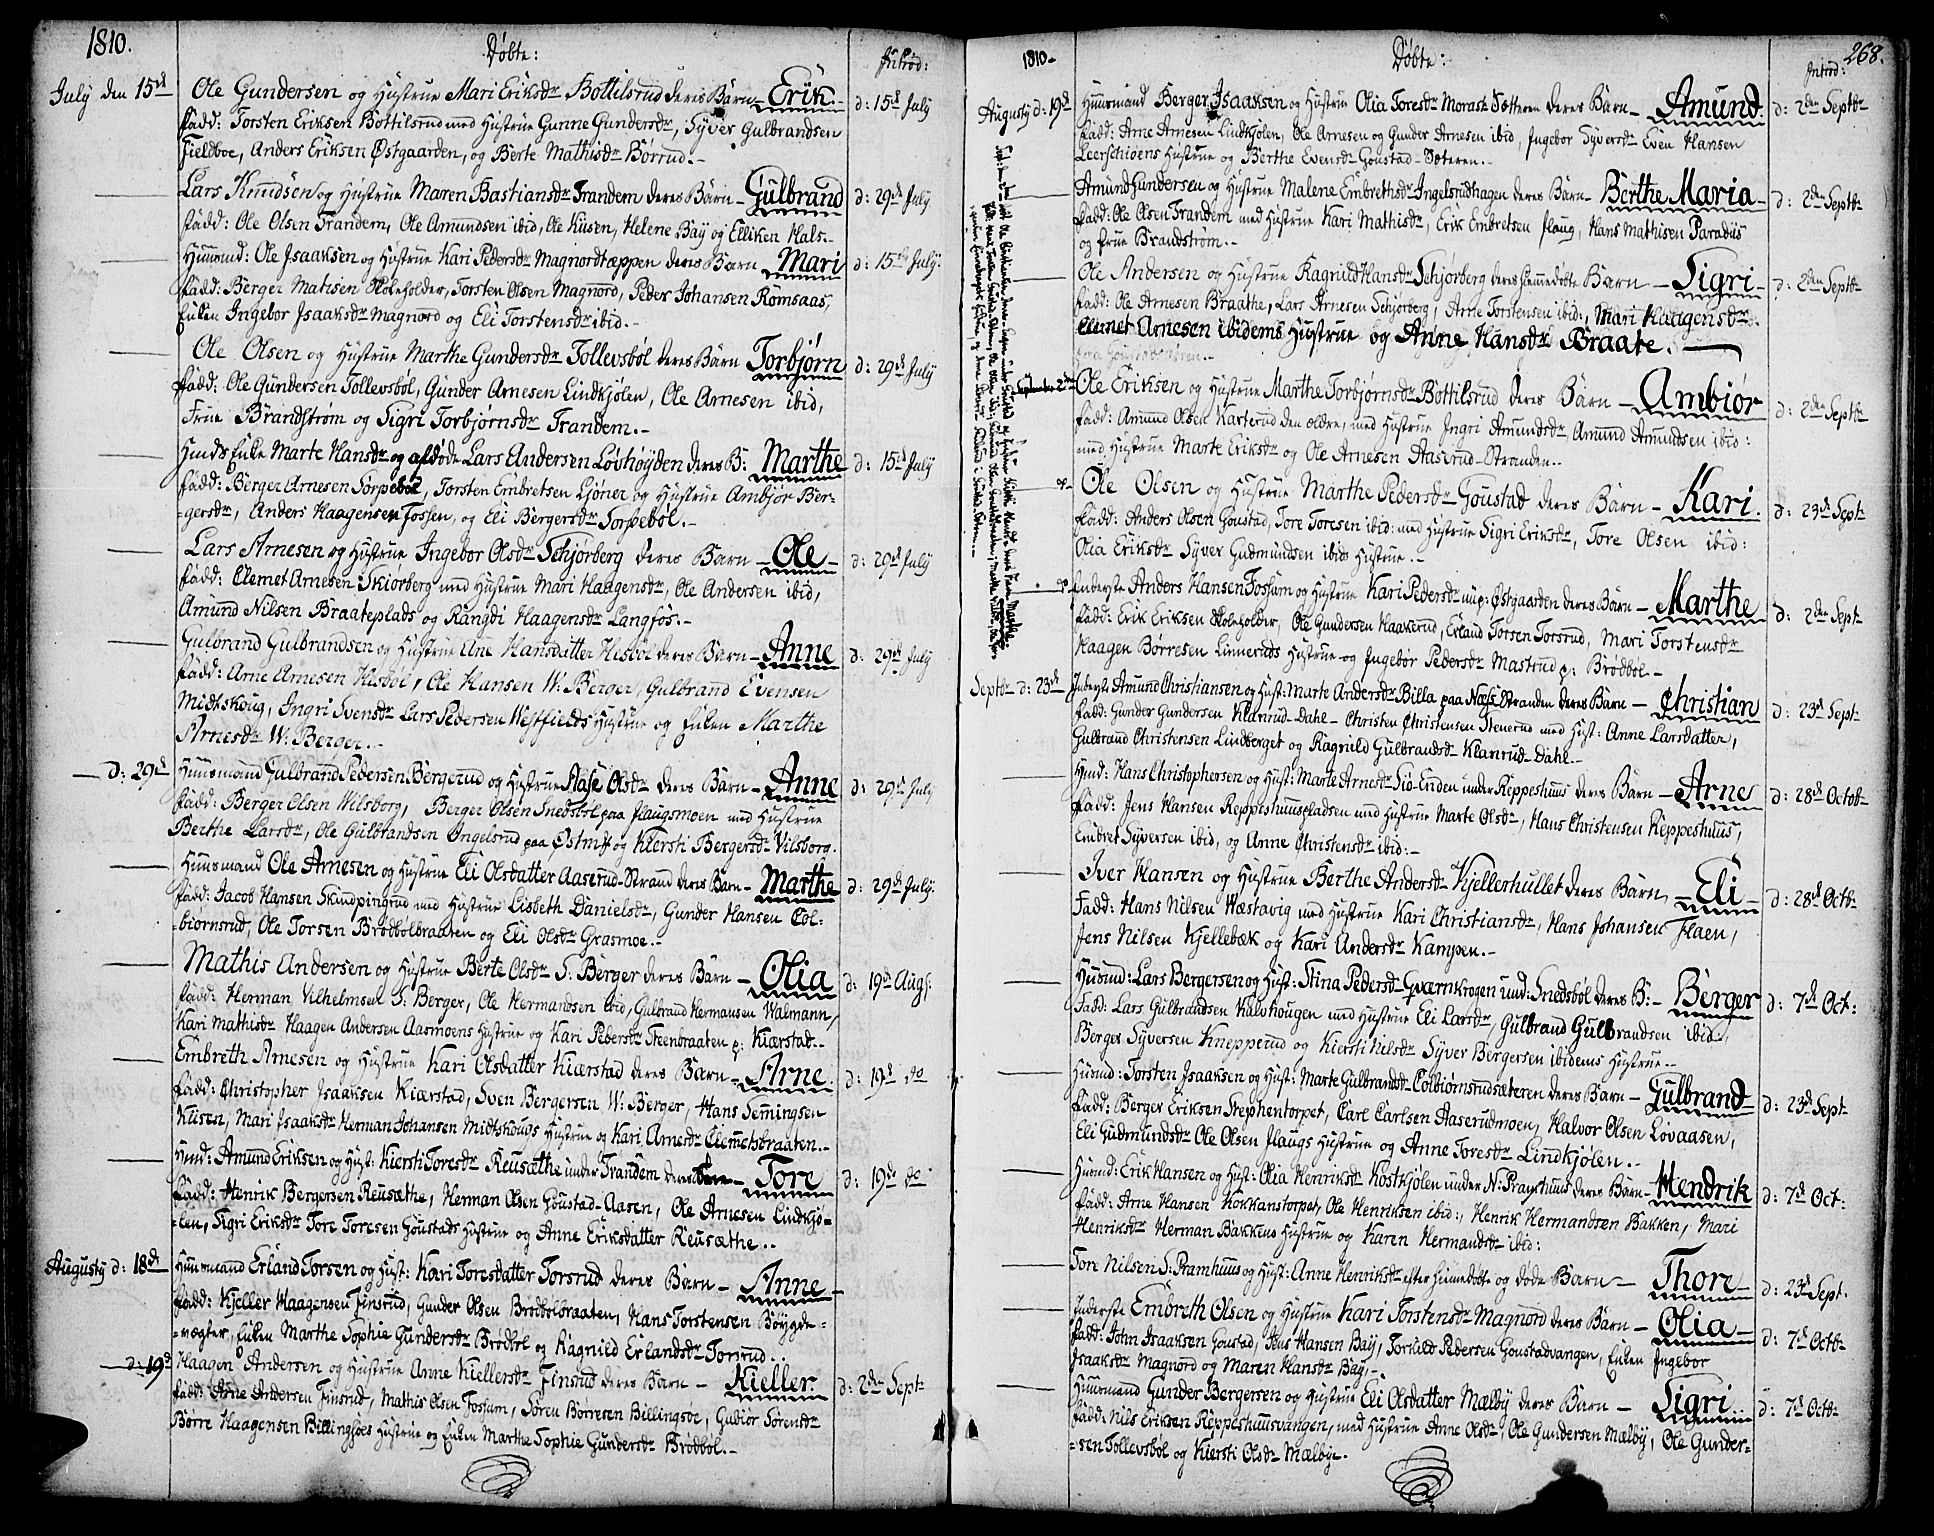 1810.
Døbte:
Introd:
July den 15d Ole Gundersen og Hustrue Mari Eriksdr Bottilsrud deres Barn – Erik. d: 15d July
Fadd: Torsten Eriksen Bottilsrud med Hustrue Gunne Gundersdr, Syver Gulbrandsen
Fieldboe, Anders Eriksen Østgaarden, og Berte Mathisdr Børrud.–
Lars Knudsen og Hustrue Maren Bastiansdr Trandem deres Barn – Gulbrand d: 29d July
Fadd: Ole Olsen Trandem, Ole Amundsen ibid, Ole Kusen, Helene Bay og Elliken Hals.–
Huusmd: Ole Isaaksen og Hustrue Kari Pedersdr Magnordtæppen deres Barn Mari d: 15de July.
Fadd: Berger Matisen Skoleholder, Torsten Olsen Magnord, Peder Johansen Romsaas,
Enken Ingebor Isaaksdr Magnord og Eli Torstensdr ibid.–
Ole Olsen og Hustrue Marthe Gundersdr Tollevsbøl deres Barn Torbjørn d: 29d July
Fadd: Ole Gundersen Tollevsbøl, Gunder Arnesen Lindkjølen, Ole Arnesen ibid,
Frue Brandstrøm og Sigri Torbjørnsdr Trandem.–
Hmds Enke Marte Hansdr og afdøde Lars Andersen Løvhøyden deres B: Marthe d: 15d July
Fadd: Berger Arnesen Torpebøl, Torsten Embretsen Ljøner og Hustrue Ambjør Ber-
=gersdr, Anders Haagensen Fossen, og Eli Bergersdr Torpebøl.–
Lars Arnesen og Hustrue Ingebor Olsdr Schjørberg deres Barn – Ole – d: 29d July
Fadd: Clemet Arnesen Skiørberg med Hustrue Mari Haagensdr, Ole Andersen ibid,
Amund Nilsen Braateplads og Rangdi Haagensdr Langfos.–
Gulbrand Gulbrandsen og Hustrue Ane Hansdatter Hesbøl deres Barn – Anne d: 29d July
Fadd: Arne Arnesen Hesbøl, Ole Hansen W. Berger, Gulbrand Evensen
Midtskoug, Ingri Svensdr Lars Pedersen Westfields Hustrue og Enken Marthe
Arnesdr W. Berger.–
d: 29d Huusmand Gulbrand Pedersen Bergerud og Hustrue Aase Olsdr deres Barn – Anne d: 29d July
Fadd: Berger Olsen Vilsborg, Berger Olsen Snedsbøl paa Haugsmoen med Hustrue
Berthe Larsdr, Ole Gulbrandsen Ingelsrud paa Østmk og Kiersti Bergersdr Vilsborg.
Huusmand Ole Arnesen og Hustrue Eli Olsdatter Aaserud-Strand deres Barn – Marthe d: 29d July.
Fadd: Jacob Hansen Skindpingrud med Hustrue Lisbeth Danielsdr, Gunder Hansen Col-
=biornsrud, Ole Torsen Brødbølbraaten og Eli Olsdr Grasmoe.–
Mathis Andersen og Hustrue Berte Olsdr S. Berger deres Barn – Olia d: 19d Aug:
Fadd: Herman Vilhelmsen S. Berger, Ole Hermandsen ibid, Gulbrand Hermansen Walmann,
Kari Mathisdr Haagen Andersen Aasmoens Hustrue og Kari Pedersdr Steenbraaten p: Kiærstad.–
Embreth Arnesen og Hustrue Kari Olsdatter Kiærstad deres Barn – Arne. d: 19d do
Fadd: Christopher Isaaksen Kiærstad, Sven Bergersen W. Berger, Hans Semingsen
Kusen, Mari Isaaksdr Herman Johansen Midtskougs Hustrue og Kari Arnesdr Clemetsbraaten.–
Hmd: Amund Eriksen og Hust: Kiersti Toresdr Reusæthe under Trandem deres Barn – Tore d: 19d do
Fadd: Henrik Bergersen Reusæthe, Herman Olsen Goustad-Aasen, Ole Arnesen Lindkjø-
=len, Sigri Eriksdr Tore Toresen Goustads Hustrue og Anne Eriksdatter Reusæthe..
Augusty d: 18d Huusmand Erland Torsen og Hust: Kari Toresdatter Torsrud deres Barn – Anne –
Fadd: Kjeller Haagensen Finsrud, Gunder Olsen Brødbølbraaten, Hans Torstensen Bøygde-
=vægter, Enken Marthe Sophie Gundersdr Brødbøl og Ragnild Erlandsdr Torsrud..
d: 19d Haagen Andersen og Hustrue Anne Kiellersdr Finsrud deres Barn – Kieller. d: 2den Sept
Fadd: Arne Andersen Finsrud, Mathis Olsen Fossum, Søren Børresen Billingsoe, Gudior Sørensdr
Børre Haagensen Billingsoes Hustrue og Enken Marthe Sophie Gundersdr Brødbøl.–
1810–
Døbte:
Introd:
268.
Augusty d: 19d Huusmand Berger Isaaksen og Hustrue Olia Toresdr Morast-Sætteren deres Barn – Amund. d: 2den Septbr
Fadd: Arne Arnesen Lindkjølen, Ole Arnesen og Gunder Arnesen ibid, Ingebor Syversdr Even Hansen
Leerschiøens Hustrue og Berthe Evensdr Goustad-Sæteren.–
Amund Gundersen og Hustrue Malene Embrethsdr Ingelsrudhagen deres Barn – Berthe Maria – d: 2den Septbr
Fadd: Ole Olsen Trandem med Hustrue Kari Mathisdr, Erik Embretsen Haug, Hans Mathisen Paradiis
og Frue Brandstrøm.–
Ole Andersen og Hustrue Ragnild Hansdr Schjørberg deres hiemmedøbte Barn – Sigri – d: 2den Septbr
Fadd: Ole Arnesen Braathe, Lars Arnesen Schjørberg, Arne Torstensen ibid:, Mari Haagensdr
Clemet Arnesen ibidems Hustrue og Anne Hansdr Braate.–
Ole Eriksen og Hustrue Marthe Torbjørnsdr Bottilsrud deres Barn – Ambiør d: 2den Septbr
Fadd: Amund Olsen Karterud den ældre, med Hustrue Ingri Amundsdr, Amund Amundsen ibid:
med Hustrue Marte Eriksdr og Ole Arnesen Aaserud-Stranden..
Ole Olsen og Hustrue Marthe Pedersdr Goustad deres Barn – Kari. d: 23d Sept
Fadd: Anders Olsen Goustad, Tore Toresen ibid: med Hustrue Sigri Eriksdr, Tore Olsen ibid:
Olia Eriksdr Syver Gudmundsen ibids Hustrue.–
Inderste Anders Hansen Fossum og Hustrue Kari Pedersdr nup: Østgaarden deres Barn – Marthe d: 2den Sept
Fadd: Erik Eriksen Skoleholder, Ole Gundersen Haakerud, Erland Torsen Torsrud, Mari Torstensdr
Haagen Børresen Linneruds Hustrue og Ingebor Pedersdr Mastrud p: Brødbøl –
Septbr d: 23d Inderste Amund Christiansen og Hust: Marte Andersdr Billa paa Næss-Stranden deres Barn – Christian d: 23d Sept
Fadd: Gunder Gundersen Klanrud-Dahl – Christen Christensen Stenerud med Hust: Anne Larsdatter,
Gulbrand Christensen Lindberget og Ragnild Gulbrandsdr Klanrud-Dahl.–
Hmd: Hans Christophersen og Hust: Marte Arnesdr Siø-Enden under Reppeshuus deres Barn – Arne d: 28d Octob
Fadd: Jens Hansen Reppeshuuspladsen med Hustrue Marte Olsdr, Hans Christensen Reppeshuus,
Embret Syversen ibid, og Anne Christensdr ibid:–
Iver Hansen og Hustrue Berthe Andersdr Kjellerhullet deres Barn – Eli d: 28d Octb
Fadd: Hans Nilsen Wæstavig med Hustrue Kari Christiansdr, Hans Johansen Flaen,
Jens Nilsen Kjellebæk og Kari Andersdr Kampen.–
Husmd: Lars Bergersen og Hust: Stina Pedersdr Qværnkrogen und: Snedsbøl deres B: – Berger d: 7d Oct:
Fadd: Lars Gulbrandsen Kalvhougen med Hustrue Eli Larsdr, Gulbrand Gulbrandsen ibid,
Berger Syversen Knepperud og Kiersti Nilsdr Syver Bergersen ibidems Hustrue.–
Husmd: Torsten Isaaksen og Hust: Marte Gulbrandsdr Colbiørnsrudsæteren deres Barn – Gulbrand – d: 23d Sept
Fadd: Berger Eriksen Stephentorpet, Carl Carlsen Aaserudmoen, Halvor Olsen Lovaasen,
Eli Gudmundsdr Ole Olsen Haugs Hustrue og Anne Toresdr Lindkjølen.–
Husmd: Erik Hansen og Hust: Olia Henriksdr Kostkjølen under N: Pramhuus deres Barn – Hendrik d: 7d Oct:
Fadd: Arne Hansen Kokkanstorpet, Ole Henriksen ibid:, Henrik Hermandsen Bakken, Mari
Henriksdr Herman Bakkens Hustrue og Karen Hermandsdr ibid:
Tore Nilsen S. Pramhuus og Hust: Anne Henriksdr efter hiemmedøbte og døde Barn – Thore – d: 23d Sept.
Inderste Embreth Olsen og Hustrue Kari Torstensdr Magnord deres Barn – Olia – d: 7d Octb
Fadd: John Isaaksen Goustad, Jens Hansen Bay, Torkild Pedersen Goustadvangen, Enken Ingebor
Isaaksdr Magnord og Maren Hansdr Bay.–
Huusmand Gunder Bergersen og Hustrue Eli Olsdatter Mælby deres Barn – Sigri.. d: 7d Octb
Fadd: Nils Eriksen Reppeshuusvangen, med Hustrue Anne Olsdr, Ole Gundersen Mælby, Ole Gunder-
=sen Tollevsbøl og Kiersti Olsdr Mælbye.